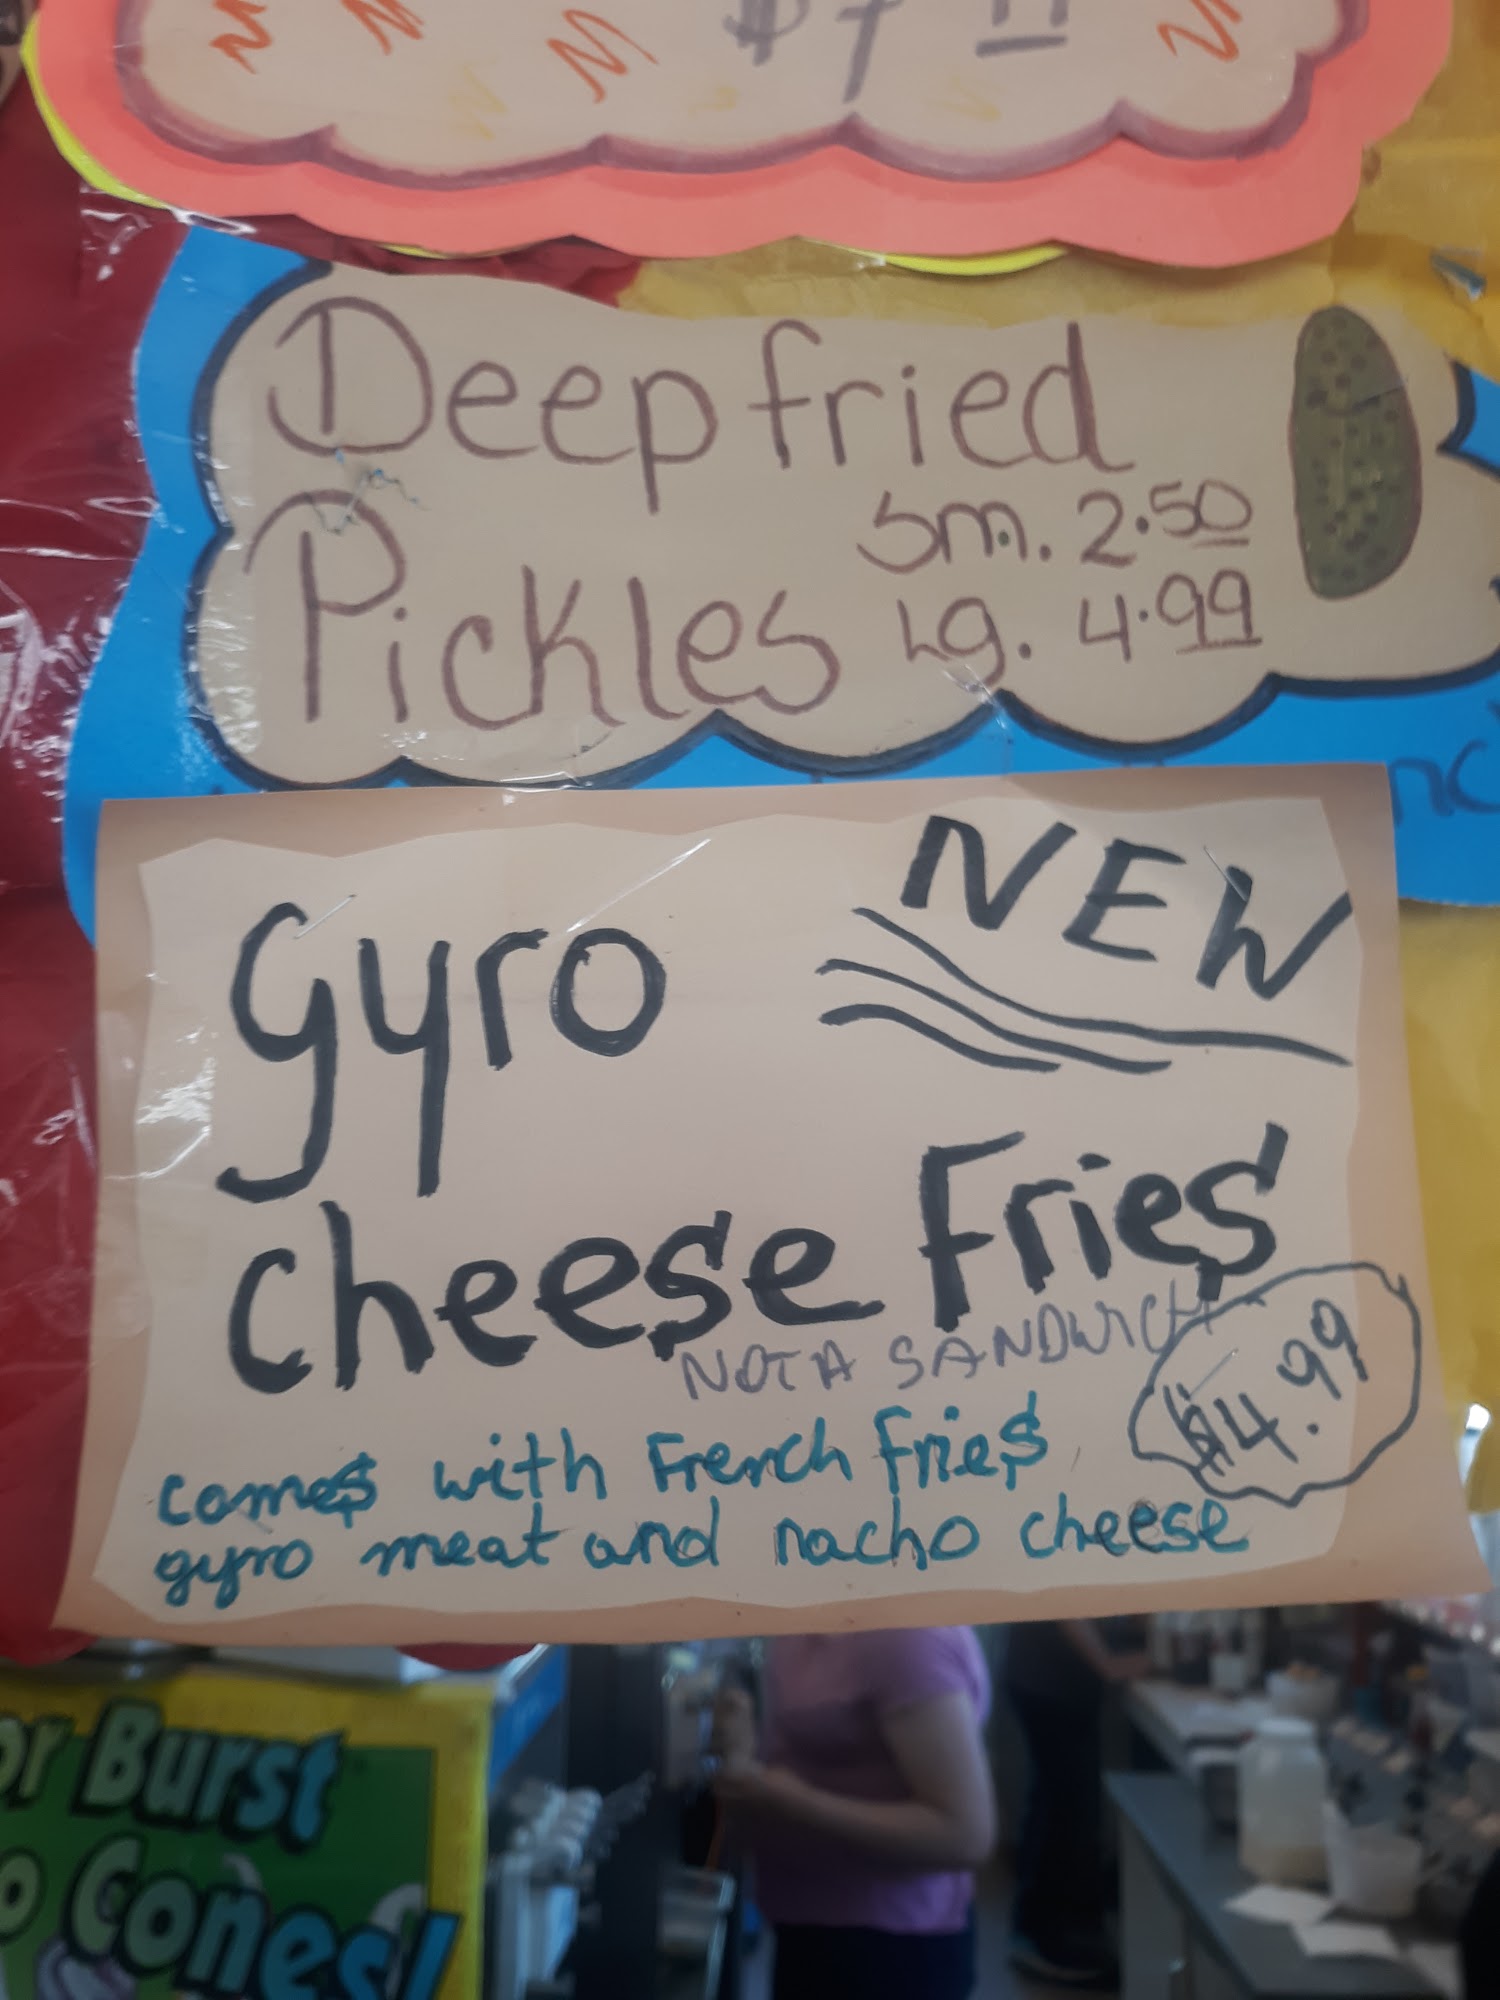 Deep fried
Pickles
Sm. 2.50
Lg. 4.99
NEW
Gyro
Cheese Fries
NOT A SANDWICH
$4.99
comes with French fries
gyro meat and nacho cheese
Burst
Cones!